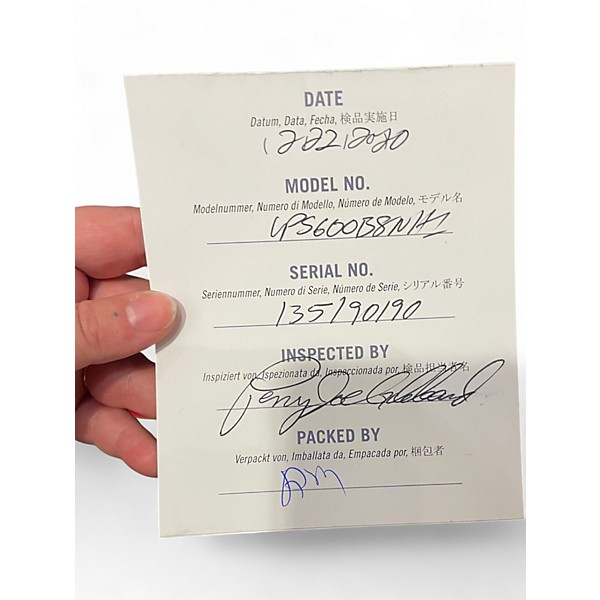 DATE
Datum, Data, Fecha, 検品実施日
12/22/2020
MODEL NO.
Modelnummer, Numero di Modello, Número de Modelo, モデル名
LPS600B8NH1
SERIAL NO.
Seriennummer, Numero di Serie, Número de Serie, シリアル番号
135190190
INSPECTED BY
Inspiziert von, Ispezionata da, Inspeccionada por, 検品担当者名
PACKED BY
Verpackt von, Imballata da, Empacada por, 梱包者